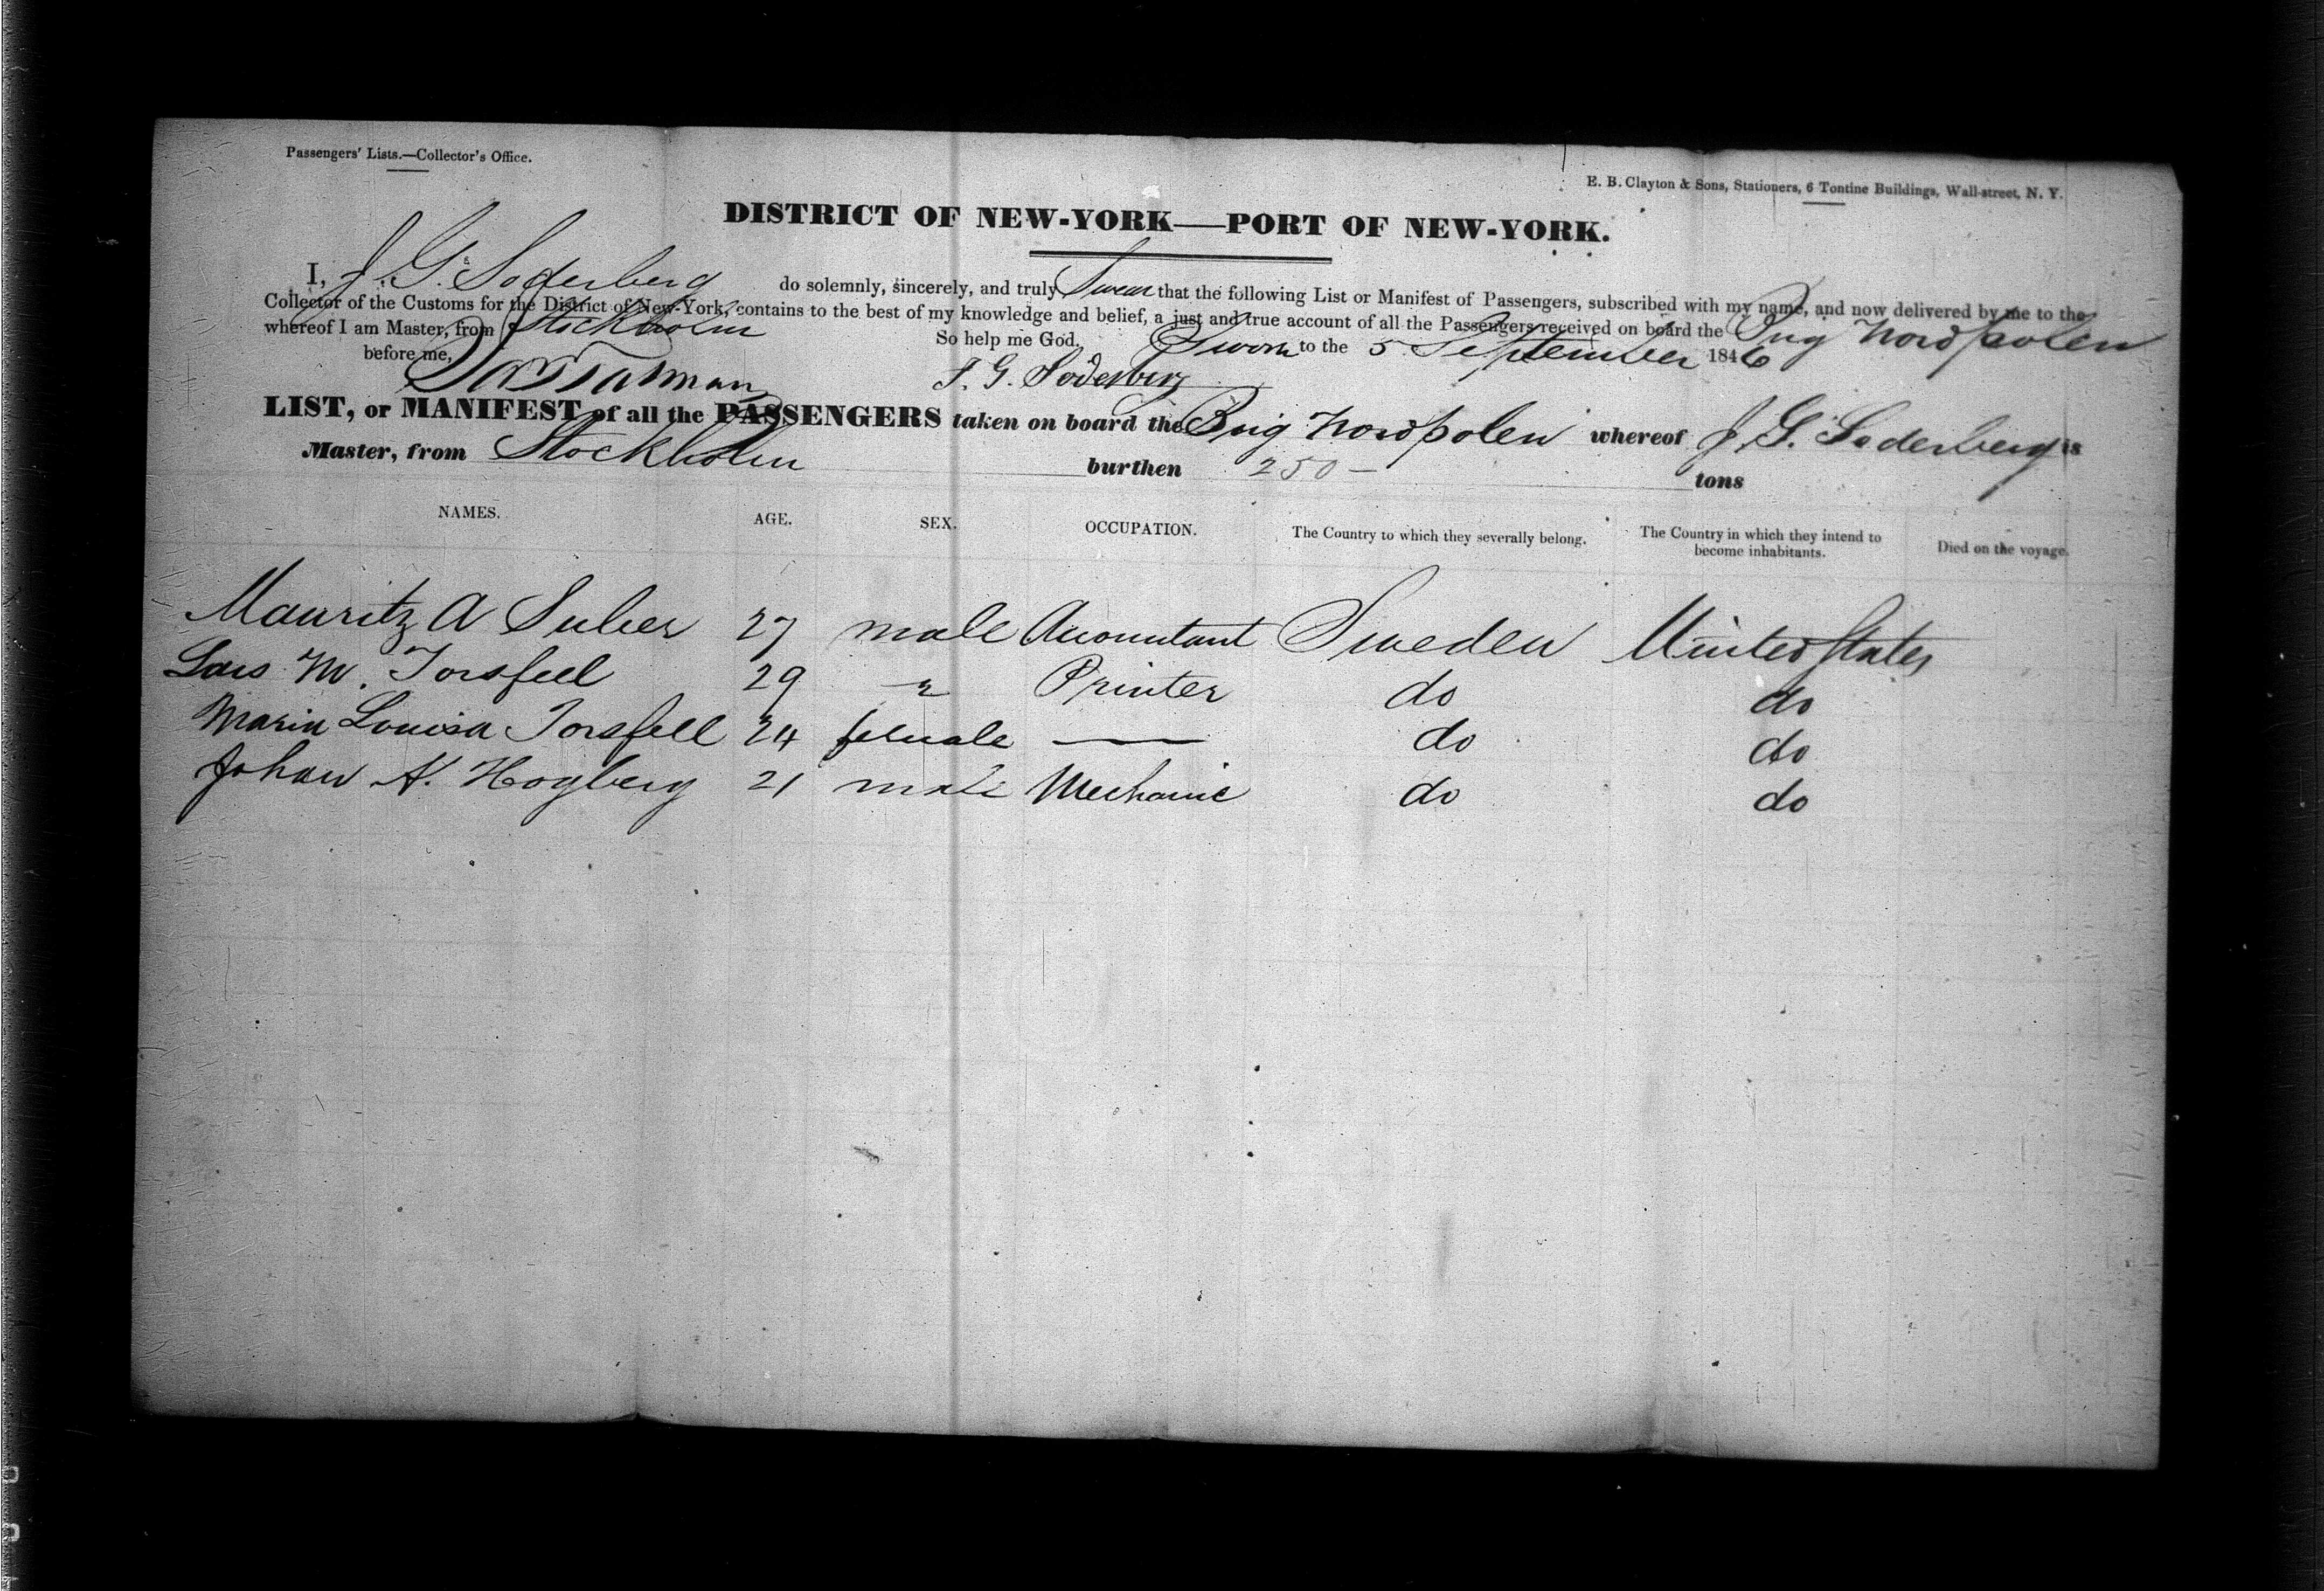 Passengers' Lists.—Collector's Office.
E. B. Clayton & Sons, Stationers, 6 Tontine Buildings, Wall-street, N. Y.
DISTRICT OF NEW-YORK—PORT OF NEW-YORK.
I, J. G. Soderberg do solemnly, sincerely, and truly Swear that the following List or Manifest of Passengers, subscribed with my name, and now delivered by me to the
Collector of the Customs for the District of New-York, contains to the best of my knowledge and belief, a just and true account of all the Passengers received on board the Brig Nordpolen
whereof I am Master, from Stockholm So help me God.
Sworn to the 5 September 1846
before me, J. G. Soderberg
LIST, or MANIFEST of all the PASSENGERS taken on board the Brig Nordpolen whereof J. G. Soderberg is
Master, from Stockholm burthen 250 — tons
NAMES. AGE. SEX. OCCUPATION. The Country to which they severally belong. The Country in which they intend to become inhabitants. Died on the voyage.
Mauritz A Suber 27 male Accountant Sweden United States
Lars M. Torsfell 29 " Printer do do
Maria Louisa Torsfell 24 female — do do
Johan A. Hogberg 21 male Mechanic do do